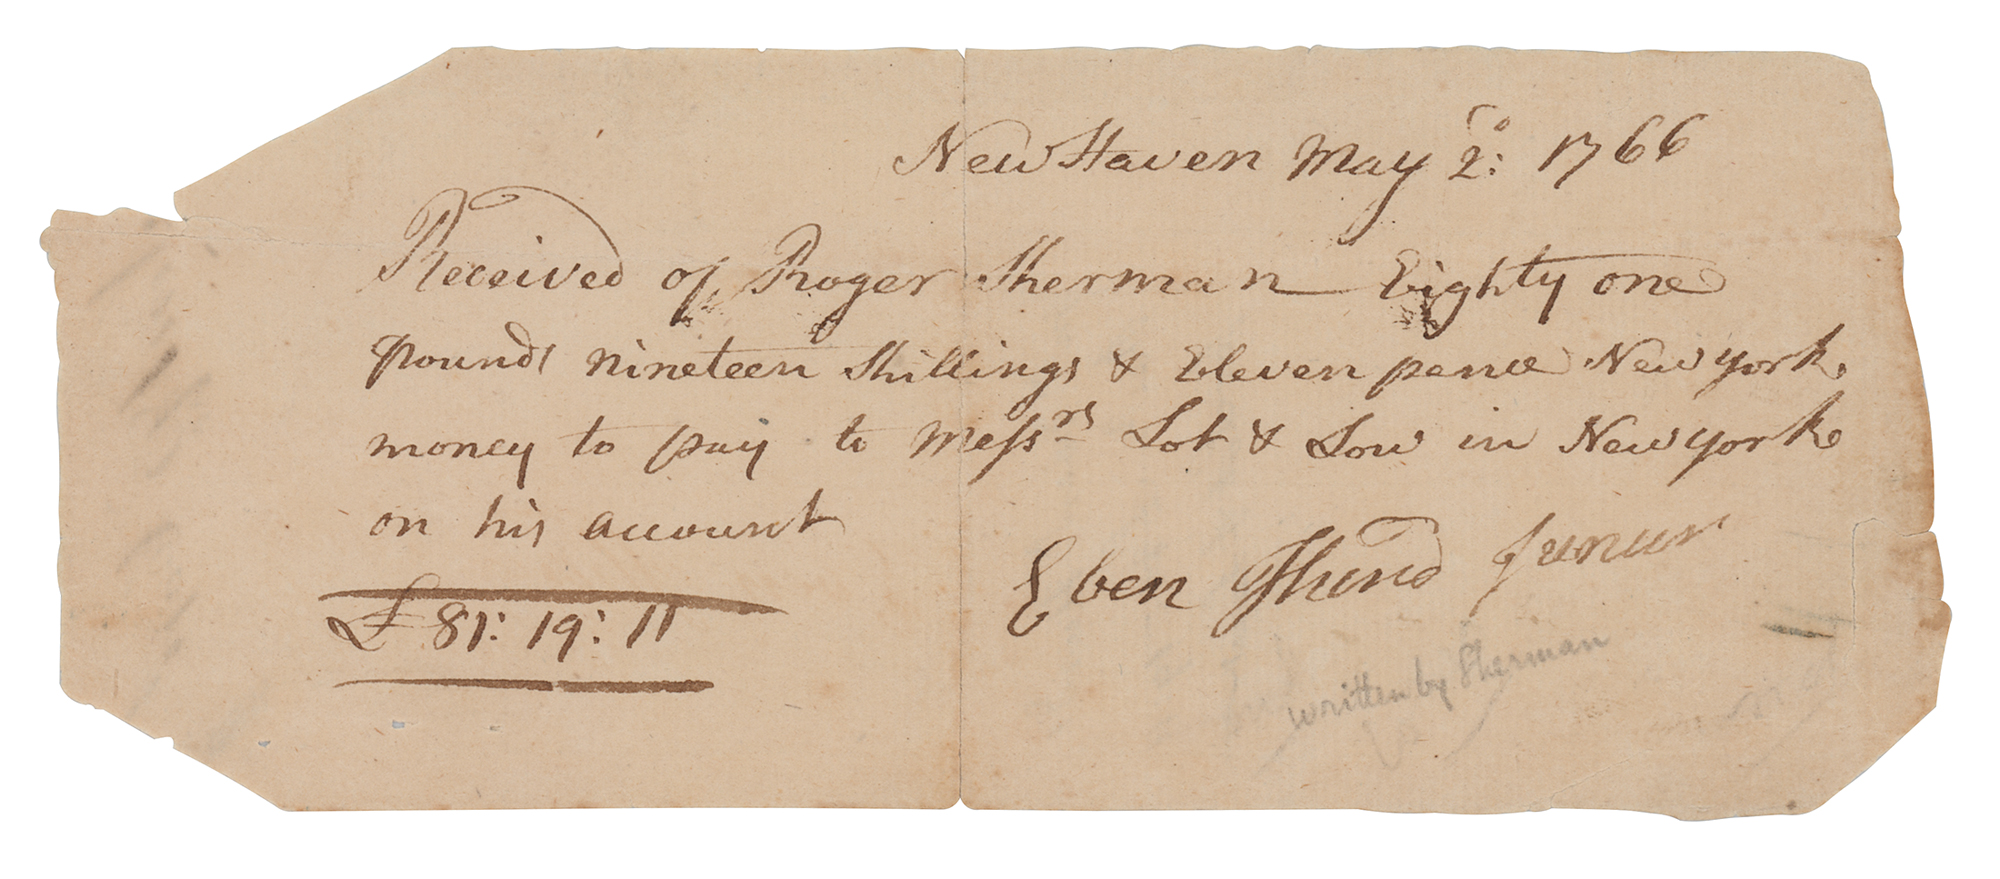 New Haven May 2d: 1766
Received of Roger Sherman Eighty one
pounds nineteen Shillings & Eleven pence New york
money to pay to Messrs Lot & Low in New york
on his account
Eben Junur
£ 81: 19: 11
written by Sherman